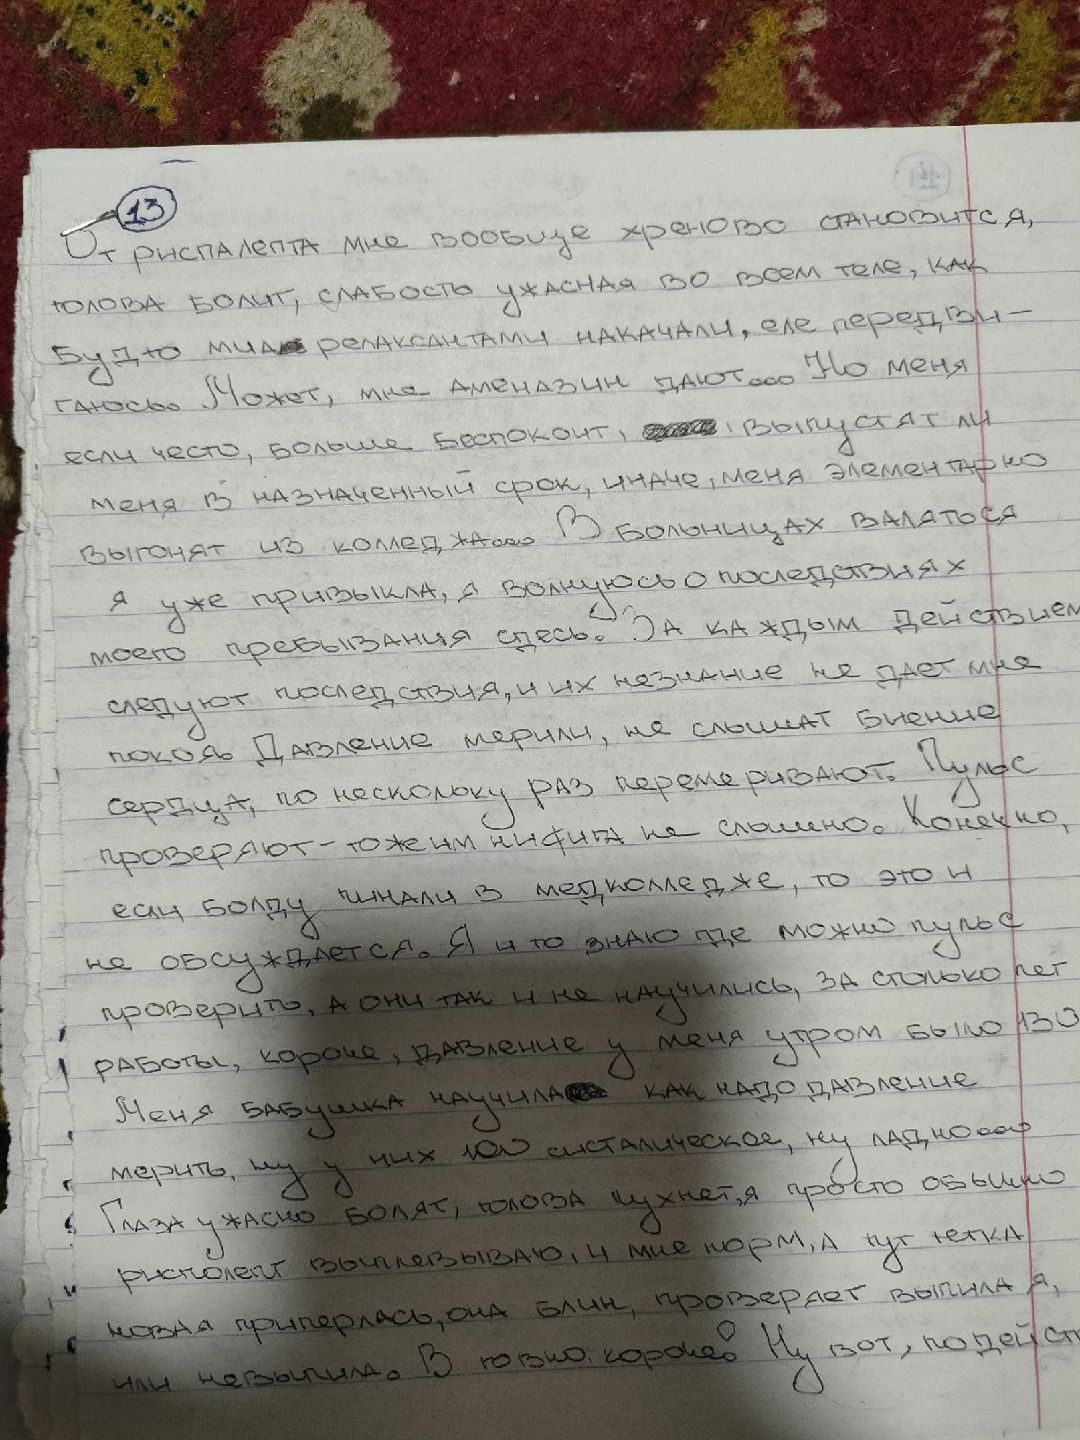 13
От риспалепта мне вообще хреново становится,
голова болит, слабость ужасная во всем теле, как
будто релаксантами накачали, еле передви-
гаюсь. Может, мне аменазин дают... Но меня
если често, больше беспокоит, выпустят ли
меня в назначенный срок, иначе, меня элементарно
выгонят из колледжа... В больницах валяться
я уже привыкла, я волнуюсь о последствиях
моего пребывания здесь. За каждым действием
следуют последствия, и их незнание не дает мне
покоя. Давление мерили, не слышат биение
сердца, по нескольку раз перемеривают. Пульс
проверяют - тоже им нифига не слышно. Конечно,
если болду пинали в медколледже, то это и
не обсуждается. Я и то знаю где можно пульс
проверить, а они так и не научились, за столько лет
работы, короче, давление у меня утром было 130
Меня бабушка научила как надо давление
мерить, ну у них 100 систалическое, ну ладно...
Глаза ужасно болят, голова пухнет, я просто обычно
рисполепт выплевываю, и мне норм, а тут тетка
новая приперлась, она блин, проверяет выпила я,
или невыпила. В говно короче. Ну вот, подейст